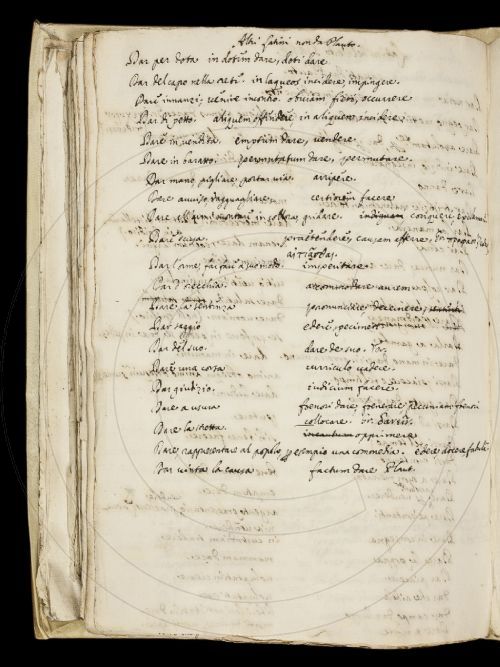 Altri latini non da Plauto.
Dar per dota in dotem dare, doti dare
Dar del capo nella rete. in laqueos incidere, impingere.
Dare innanzi, venire incontro. obviam fieri, occurrere
Dar di petto. aliquem offendere in aliquem incidere
Dare in vendita. emptum dare, vendere.
Dare in baratto. permutatum dare, permutare.
Dar mano, pigliare, portar via arripere.
Dare avviso, ragguagliare. certiorem facere
Dare in gridare. conqueri
Dar scusa praetendere, causam afferre.
Dar l'arme, a suo modo. imperitare.
Dar orecchia. accommodare aurem.
Dare la sentenza pronunciare decernere,
Dar saggio edere specimen
Dar del suo. dare de suo. Ter.
Dare una corsa curriculo vadere.
Dar giudizio. iudicium facere.
Dare a usura foenori dare, pecuniam foenori
collocare
Dare la stretta. opprimere
Dare, rappresentare al popolo per esempio una commedia. edere, docere fabulam
Dar vinta la causa factum dare Plaut.